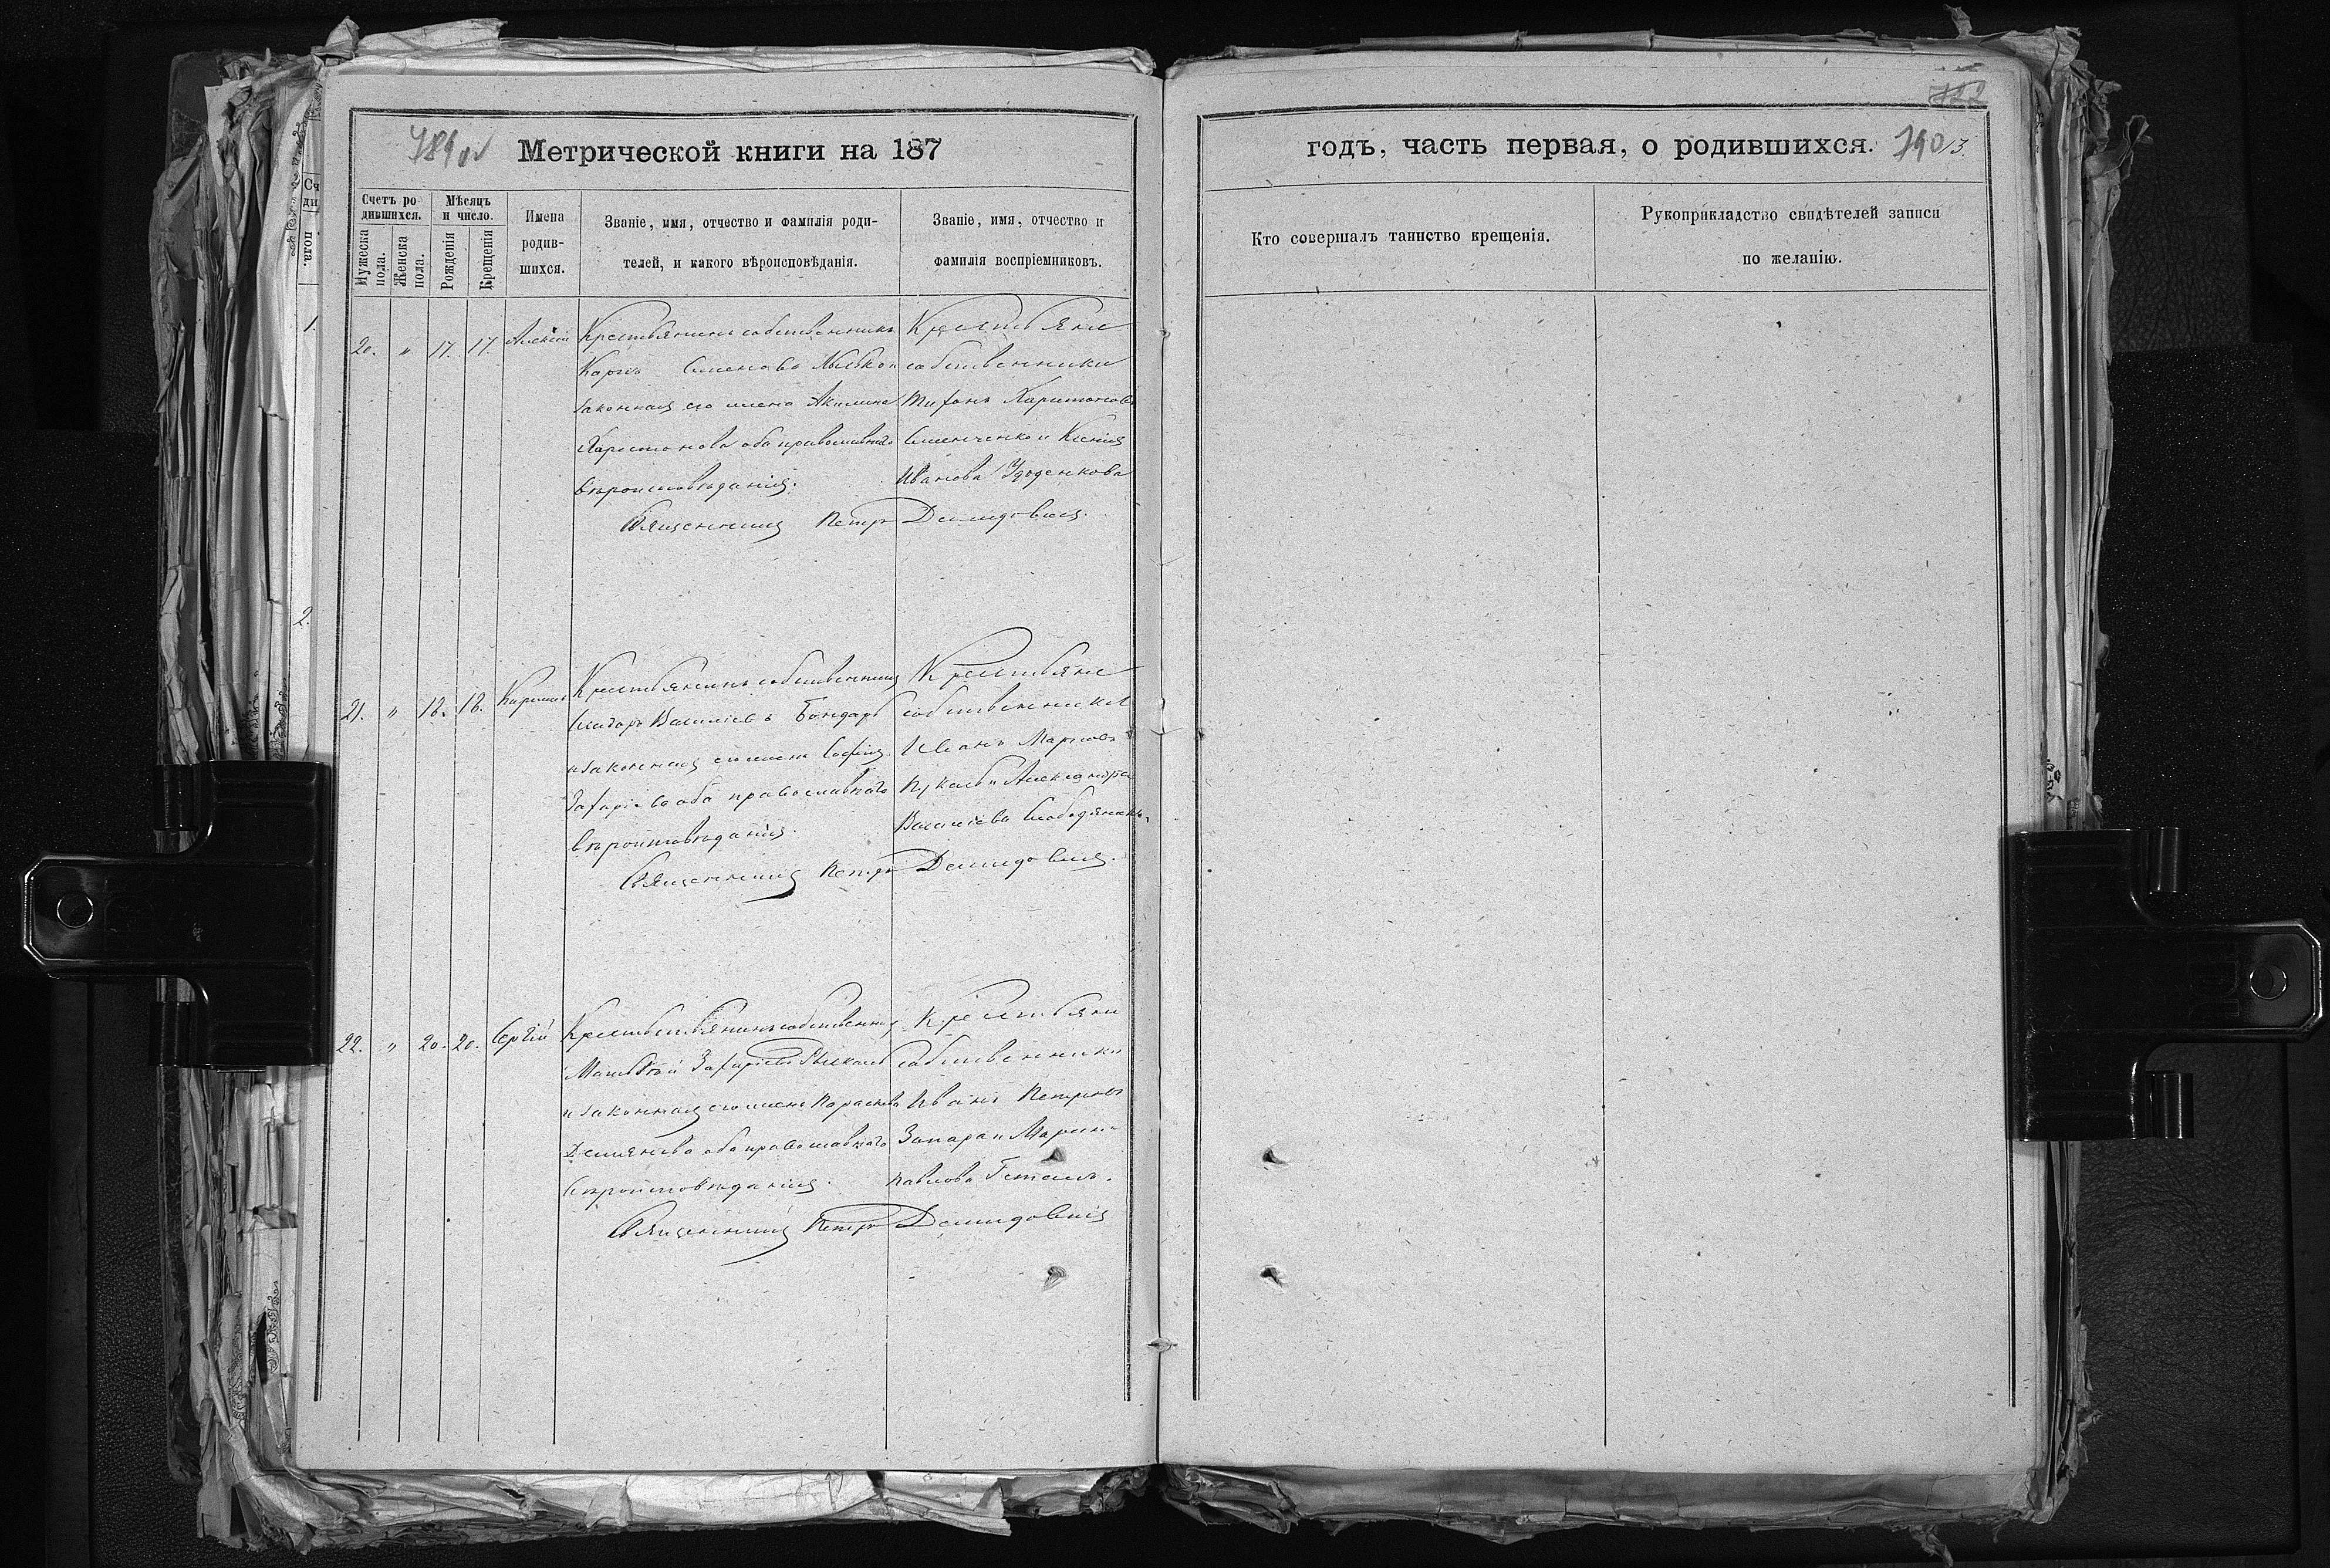 789 об
Метрической книги на 187
Счетъ ро
дившихся.
Мѣсяцъ
и число.
Мужеска
пола.
Женска
пола.
Рожденія
Крещенія
Имена
родив-
шихся.
Званіе, имя, отчество и фамилія роди-
телей, и какого вѣроисповѣданія.
Званіе, имя, отчество и
фамилія воспріемниковъ.
20. " 17. 17. Алексій
Крестьянинъ собственникъ
Карпъ Семеновъ
законная его жена Акилина
Харитонова оба православнаго
вѣроисповѣданія.
Крестьяне
собственники
Харитоновъ
Семенченко и Ксенія
Иванова Удоденкова
Священникъ Петръ Демидовичъ.
21. " 18. 18. Кириллъ
Крестьянинъ собственникъ
Исидоръ Василіевъ Бондарь
и законная его жена Софія
оба православнаго
вѣроисповѣданія.
Крестьяне
собственники
Иванъ Марковъ
и Александра
Василіева
Священникъ Петръ Демидовичъ.
22. " 20. 20. Сергій
собственникъ
Матвѣй Захаріевъ
и законная его жена Параскева
Демянова оба православнаго
вѣроисповѣданія.
Крестьяне
собственники
Иванъ Петровъ
Запара и Марина
Павлова
Священникъ Петръ Демидовичъ
722
годъ, часть первая, о родившихся.
790
13.
Кто совершалъ таинство крещенія.
Рукоприкладство свидѣтелей записи
по желанію.